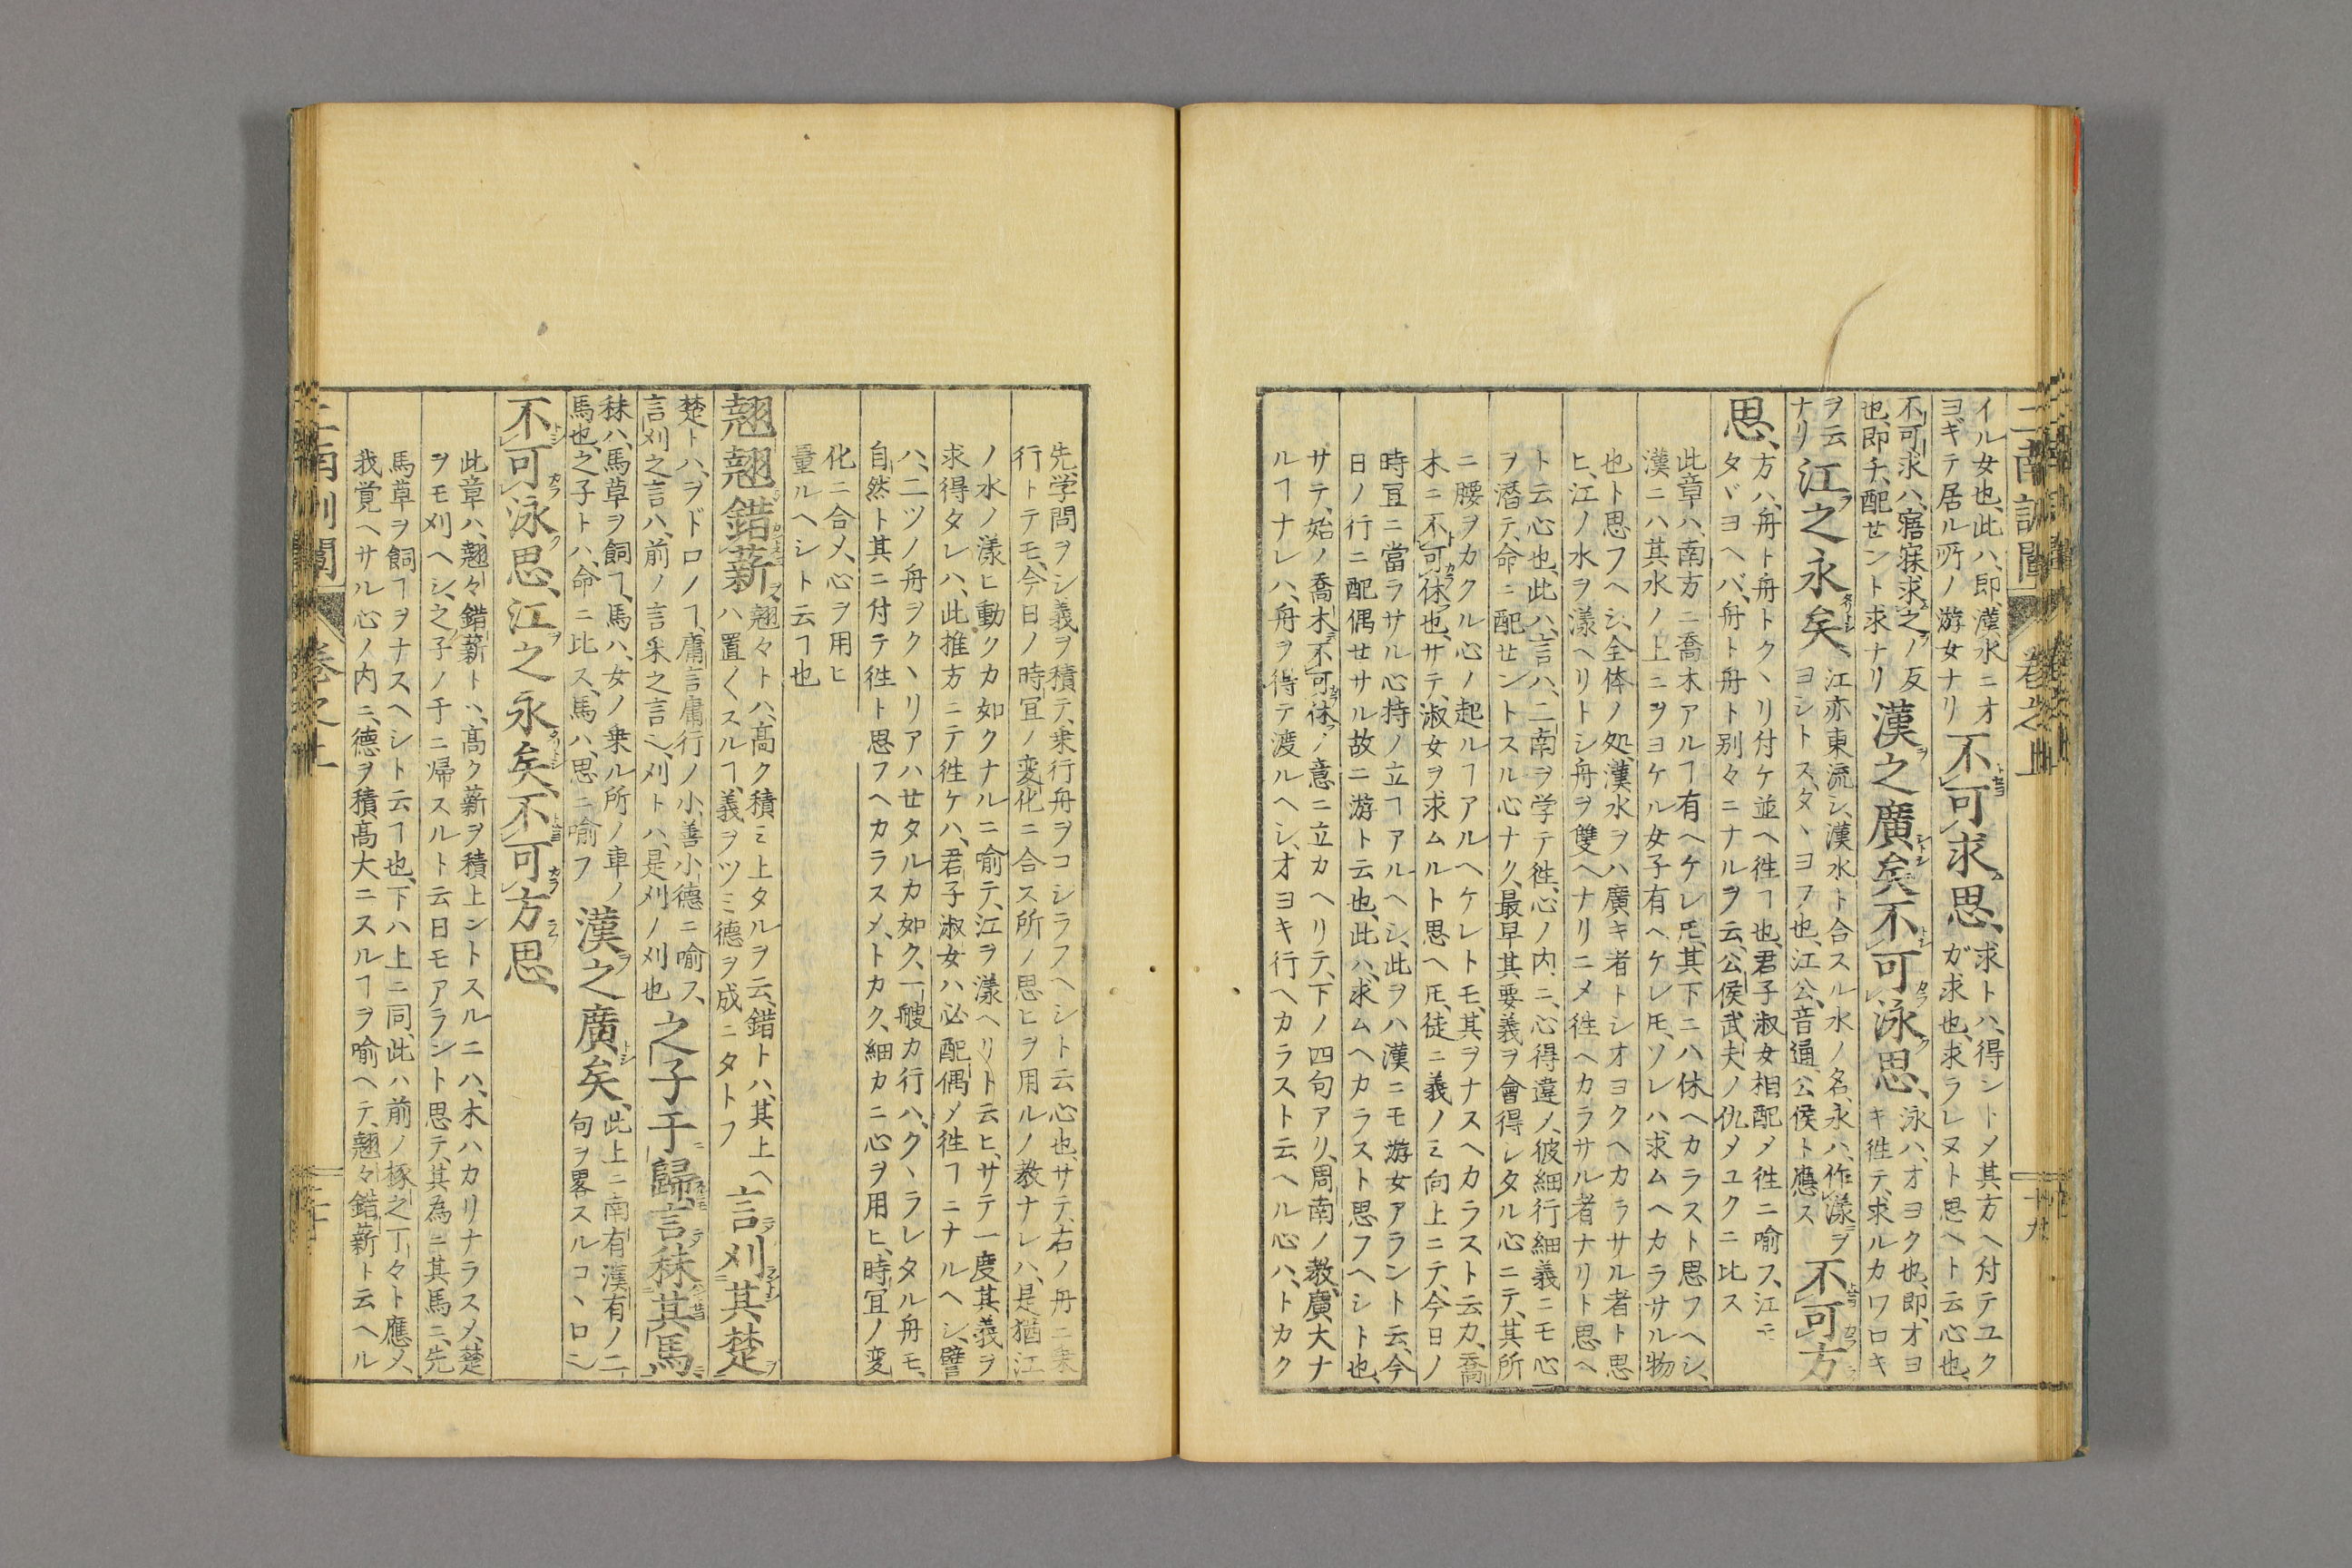 二南訓闡 卷之上 十九
イル女也、此ハ、即漢水ニオ
ヨギテ居ル所ノ游女ナリ
不可求思、
求トハ、得ントメ其方ヘ付テユク
ガ求也、求ラレヌト思ヘト云心也、
不可求ハ、寤寐求之ノ反
也、即チ、配せント求ナリ
漢之廣矣不可泳思、
泳ハ、オヨク也、即、オヨ
キ徃テ、求ルカワロキ
ヲ云
ナリ
江之永矣、
江亦東流シ、漢水ト合スル水ノ名、永ハ、作漾ヲ
ヨシトス、タヽヨフ也、江公、音通、公侯ト應ス
不可方
思、
方ハ、舟ト舟トクヽリ付ケ並ヘ徃ヿ也、君子淑女相配メ徃ニ喻フ、江モ
タヾヨヘバ、舟ト舟ト別々ニナルヲ云、公侯武夫ノ仇メユクニ比ス
此章ハ、南方ニ喬木アルヿ有ヘケレ𪜈、其下ニハ休ヘカラスト思フヘシ、
漢ニハ其水ノ上ニヲヨケル女子有ヘケレ𪜈、ソレハ、求ムヘカラサル物
也ト思フヘシ、全体ノ処、漢水ヲハ廣キ者トシオヨクヘカラサル者ト思
ヒ、江ノ水ヲ漾ヘリトシ舟ヲ雙ヘナリニメ徃ヘカラサル者ナリト思ヘ
ト云心也、此ハ、言ハ、二南ヲ学テ徃、心ノ内ニ、心得違ノ、彼細行細義ニモ心
ヲ潛テ、命ニ配せントスル心ナク、最早其要義ヲ會得シタル心ニテ、其所
ニ腰ヲカクル心ノ起ルヿアルヘケレトモ、其ヲナスヘカラスト云カ、喬
木ニ不可休也、サテ、淑女ヲ求ムルト思ヘ𪜈、徒ニ義ノミ向上ニテ、今日ノ
時冝ニ當ラサル心持ノ立ヿアルヘシ、此ヲハ漢ニモ游女アラント云、今
日ノ行ニ配偶せサル故ニ游ト云也、此ハ、求ムヘカラスト思フヘシト也、
サテ、始ノ喬木不可休ノ意ニ立カヘリテ、下ノ四句アリ、周南ノ教、廣大ナ
ルヿナレハ、舟ヲ得テ渡ルヘシ、オヨキ行ヘカラスト云ヘル心ハ、トカク
先学問ヲシ義ヲ積テ、乗行舟ヲコシラフヘシト云心也、サテ、右ノ舟ニ乗
行トテモ、今日ノ時冝ノ変化ニ合ス所ノ思ヒヲ用ルノ教ナレハ、是猶江
ノ水ノ漾ヒ動クカ如クナルニ喻テ、江ヲ漾ヘリト云ヒ、サテ一度其義ヲ
求得タレハ、此推方ニテ徃ケハ、君子淑女ハ必配偶メ徃ヿニナルヘシ、譬
ハ、二ツノ舟ヲクヽリアハせタルカ如ク、一艘カ行ハ、クヽラレタル舟モ、
自然ト其ニ付テ徃ト思フヘカラスメ、トカク、細カニ心ヲ用ヒ、時冝ノ変
化ニ合メ、心ヲ用ヒ
量ルヘシト云ヿ也
翹翹錯薪
翹々トハ、高ク積ミ上タルヲ云、錯トハ、其上ヘ
ハ置〱スルヿ、義ヲツミ德ヲ成ニタトフ
言刈其楚
楚トハ、ヲドロノヿ、庸言庸行ノ小善小德ニ喻ス、
言刈之言ハ、前ノ言采之言ヘ、刈トハ、是刈ノ刈也
之子于歸、言秣其馬、
秣ハ、馬草ヲ飼ヿ、馬ハ、女ノ乗ル所ノ車ノ
馬也、之子トハ、命ニ比ス、馬ハ、思ニ喻フ
漢之廣矣、
此上ニ南有漢有ノ二
句ヲ畧スルコヽロヘ
不可泳思、江之永矣、不可方思、
此章ハ、翹々錯薪トハ、高ク薪ヲ積上ントスルニハ、木ハカリナラスメ、楚
ヲモ刈ヘシ、之子ノ于ニ帰スルト云日モアラント思テ、其為ニ其馬ニ、先
馬草ヲ飼ヿヲナスヘシト云ヿ也、下ハ上ニ同、此ハ前ノ椓之丁々ト應メ、
我覚ヘサル心ノ内ニ、德ヲ積高大ニスルヿヲ喻ヘテ、翹々錯薪ト云ヘル
二南訓闡 卷之上 二十